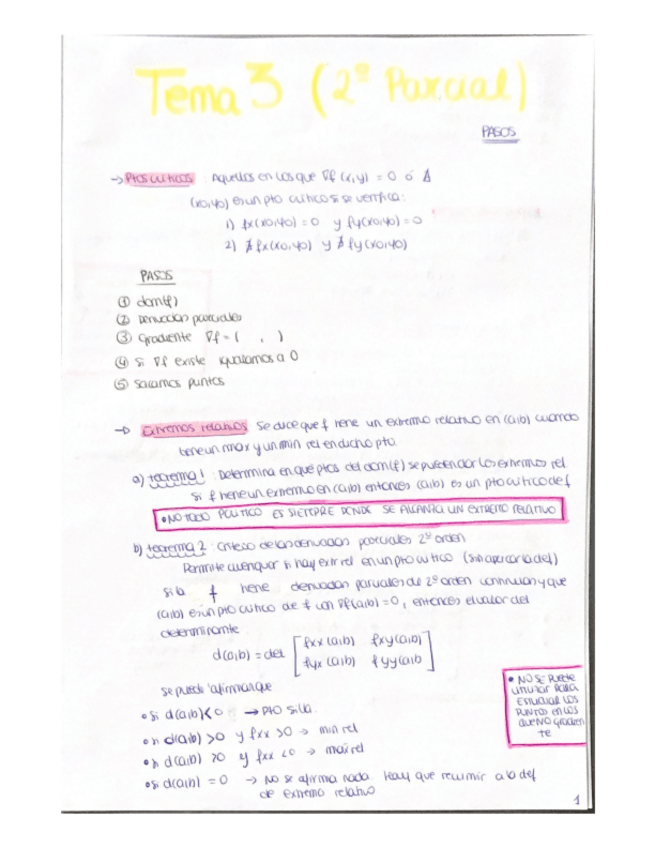 Tema 3 (2º Parcial)
PASOS
→ Ptos críticos: Aquellos en los que ∇f (x,y) = 0 ó ∄
(x0,y0) es un pto crítico si se verifica:
1) fx(x0,y0) = 0 y fy(x0,y0) = 0
2) ∄ fx(x0,y0) y ∄ fy(x0,y0)
PASOS
① dom(f)
② Derivadas parciales
③ gradiente ∇f = ( , )
④ Si ∇f existe igualamos a 0
⑤ Sacamos puntos
→ Extremos relativos Se dice que f tiene un extremo relativo en (a,b) cuando
tiene un max y un min rel en dicho pto.
a) teorema 1: Determina en qué ptos del dom(f) se pueden dar los extremos rel
Si f tiene un extremo en (a,b) entonces (a,b) es un pto crítico de f
• NO TODO PCRITICO ES SIEMPRE DONDE SE ALCANZA UN EXTREMO RELATIVO
b) teorema 2: Criterio de las derivadas parciales 2º orden
Permite averiguar si hay extr rel en un pto crítico (sin aplicar la def)
Si la f tiene derivadas parciales de 2º orden continuas y que
(a,b) es un pto crítico de f con ∇f(a,b) = 0, entonces el valor del
determinante
d(a,b) = det [ fxx (a,b) fxy(a,b)
fyx (a,b) fyy(a,b ]
se puede afirmar que
• Si d(a,b) < 0 → Pto silla.
• si d(a,b) > 0 y fxx > 0 → min rel
• si d(a,b) > 0 y fxx < 0 → max rel
• si d(a,b) = 0 → No se afirma nada. Hay que recurrir a la def
de extremo relativo
• NO SE PUEDE
UTILIZAR PARA
ESTUDIAR LOS
PUNTOS EN LOS
QUE NO gradien
te
1